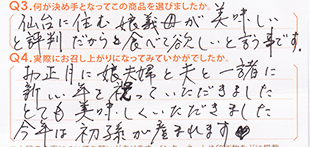 Q3.何が決め手となってこの商品を選びましたか。
仙台に住む娘義母が美味しい
と評判だからと食べて欲しいと言う事です。
Q4.実際にお召し上がりになってみていかがでしたか。
お正月に娘夫婦と夫と一諸に
新しい年を祝っていただきました
とても美味しくいただきました
今年は初孫が産まれます